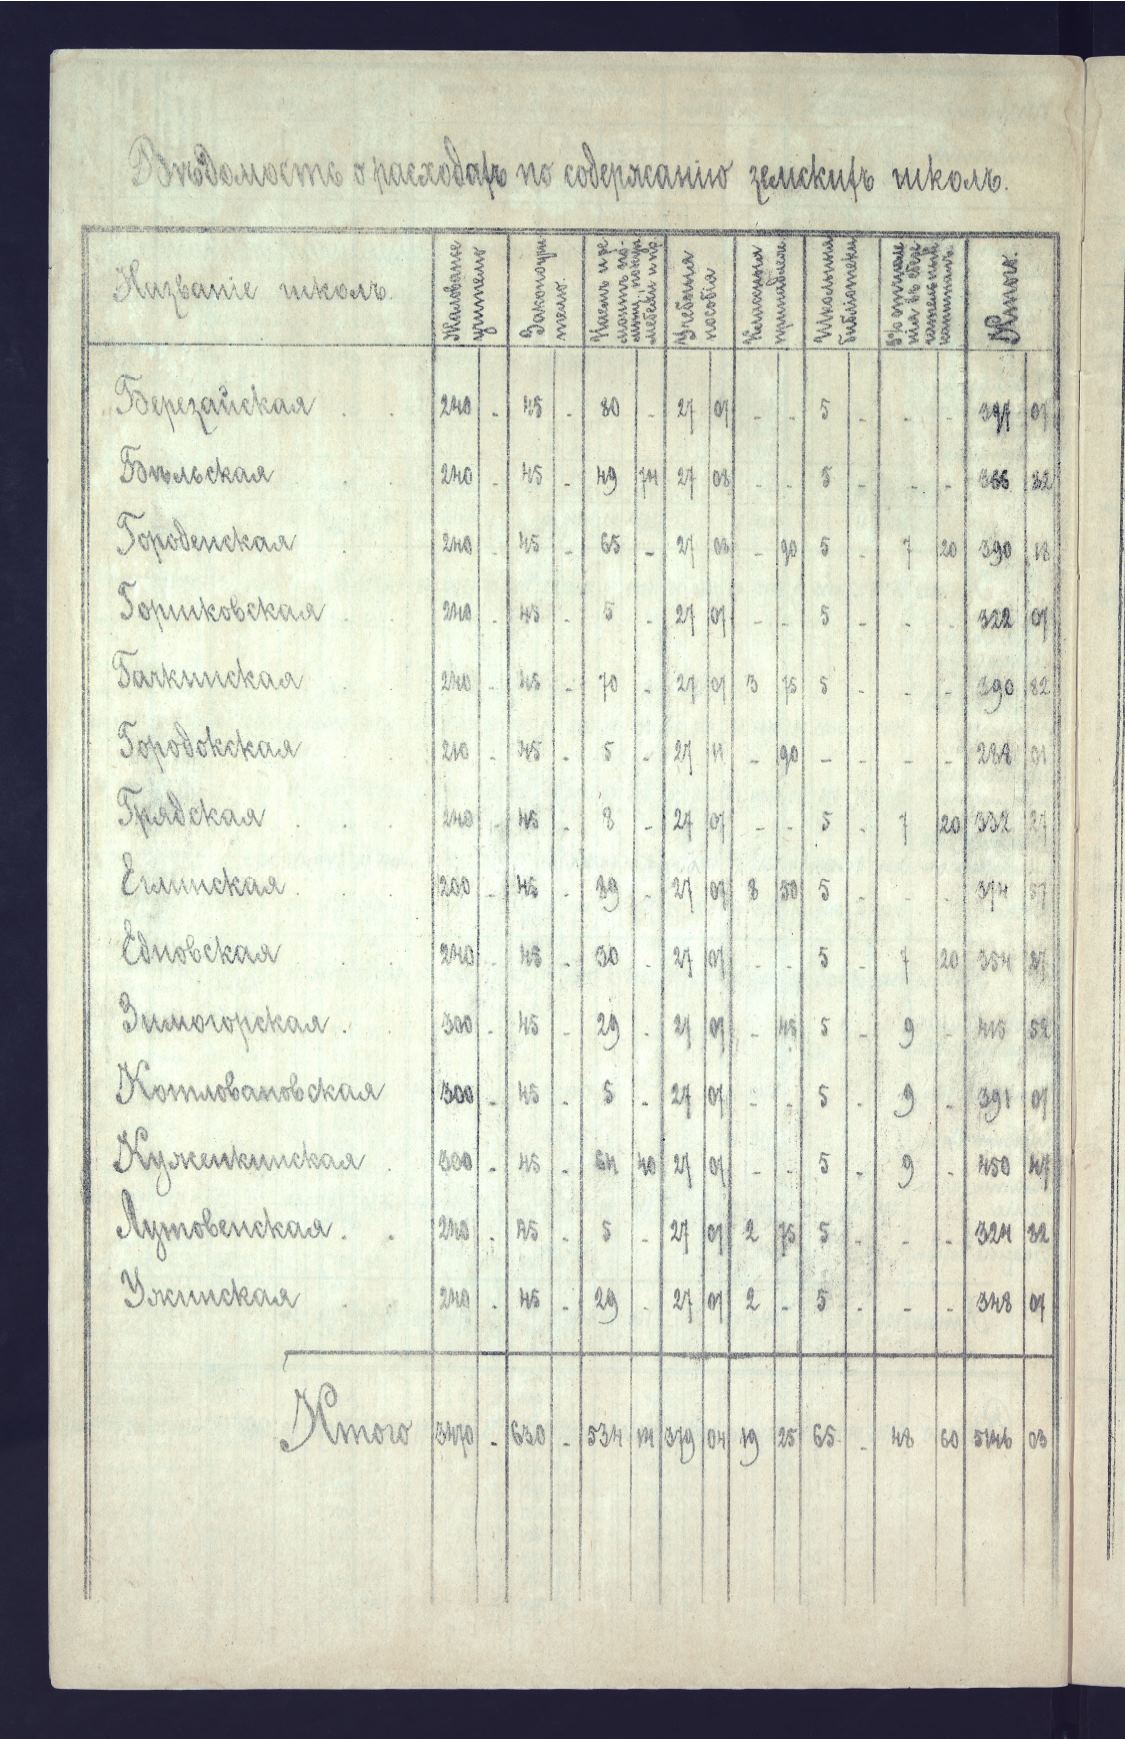 Вѣдомость о расходахъ по содержанію земскихъ школъ.
Названіе школъ. Жалованье учителю Законоучителю. Наемъ и ремонтъ помѣщ., покупк. мебели и пр. Учебныя пособія Классныя принадлеж. Школьныя библіотеки % отчисленія въ сберегательный капиталъ Итого.
Березайская . . 240 - 45 - 80 - 27 07 - - 5 - - - 397 07
Бѣльская . . 240 - 45 - 49 74 27 08 - - 5 - - - 366 82
Городенская . . 240 - 45 - 65 - 27 08 - 90 5 - 7 20 390 18
Горшковская . . 240 - 45 - 5 - 27 07 - - 5 - - - 322 07
Гачкинская . . 240 - 45 - 70 - 27 07 3 75 5 - - - 390 82
Городокская . . 210 - 45 - 5 - 27 11 - 90 - - - - 288 01
Грядская . . . 240 - 45 - 8 - 27 07 - - 5 - 7 20 332 27
Еглинская . . . 200 - 45 - 89 - 27 07 8 50 5 - - - 374 57
Едновская . . 240 - 45 - 30 - 27 07 - - 5 - 7 20 354 27
Зимогорская . . 300 - 45 - 29 - 27 07 - 45 5 - 9 - 415 52
Котловановская 300 - 45 - 5 - 27 07 - - 5 - 9 - 391 07
Куженкинская . 300 - 45 - 64 40 27 07 - - 5 - 9 - 450 47
Лутовенская . . 240 - 45 - 5 - 27 07 2 75 5 - - - 324 82
Ужинская . . 240 - 45 - 29 - 27 07 2 - 5 - - - 348 07
Итого 3470 - 630 - 534 14 379 04 19 25 65 - 48 60 5146 03